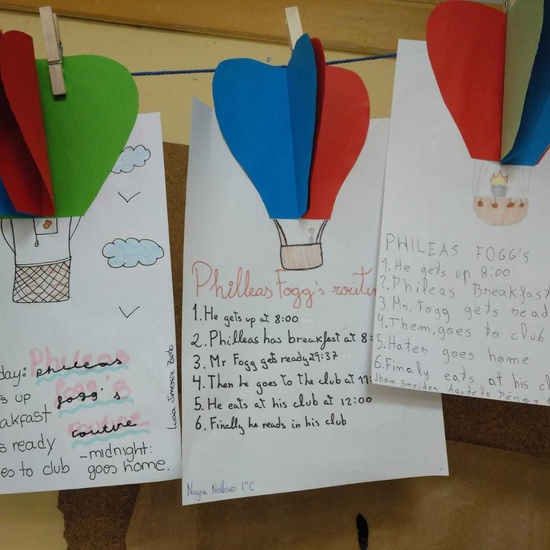 day: phileas
s up fogg's
akfast routine
s ready
es to club
-midnight:
goes home.
Phileas
fogg's
routine
Philleas Fogg's routi
1. He gets up at 8:00
2. Philleas has breakfast at 8:
3. Mr Fogg get ready 9:37
4. Then he goes to the club at 11:
5. He eats at his club at 12:00
6. Finally he reads in his club
1°C
PHILEAS FOGG'S
1. He gets up 8:00
2. Phileas Breakfast
3. Mr. Fogg gets read
4. Them, goes to club
5. Hater goes home
6. Finaly eats at his cl